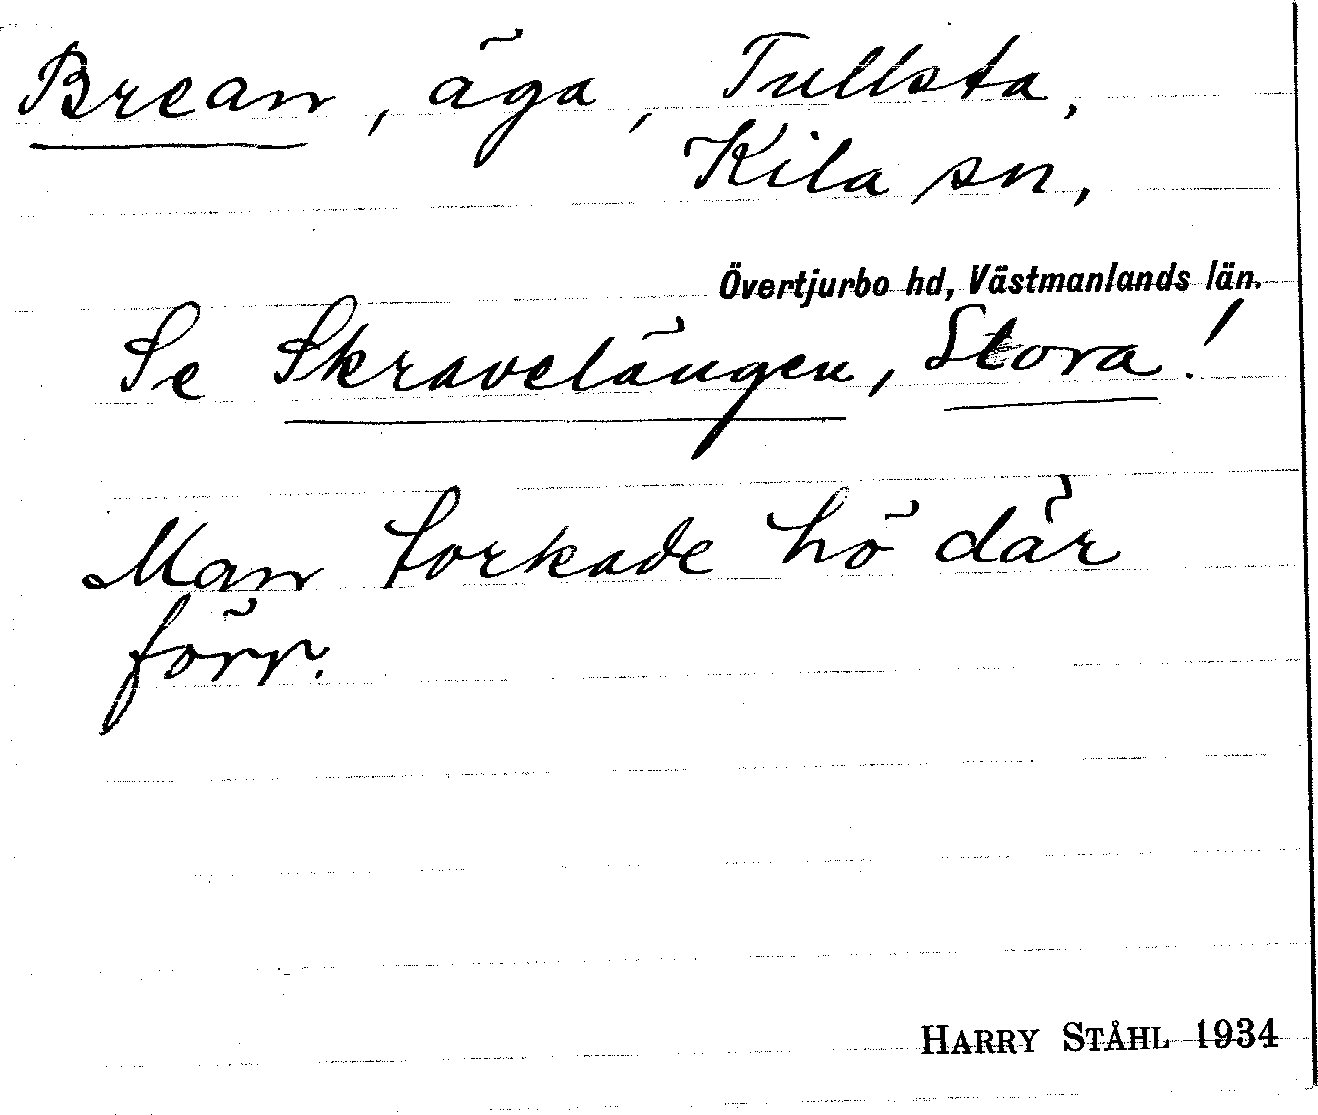 Brean, äga, Tullsta,
Kila sn,
Övertjurbo hd, Västmanlands län.
Se Skravelängen, Stora!
Man torkade hö där
förr.
HARRY STÅHL 1934